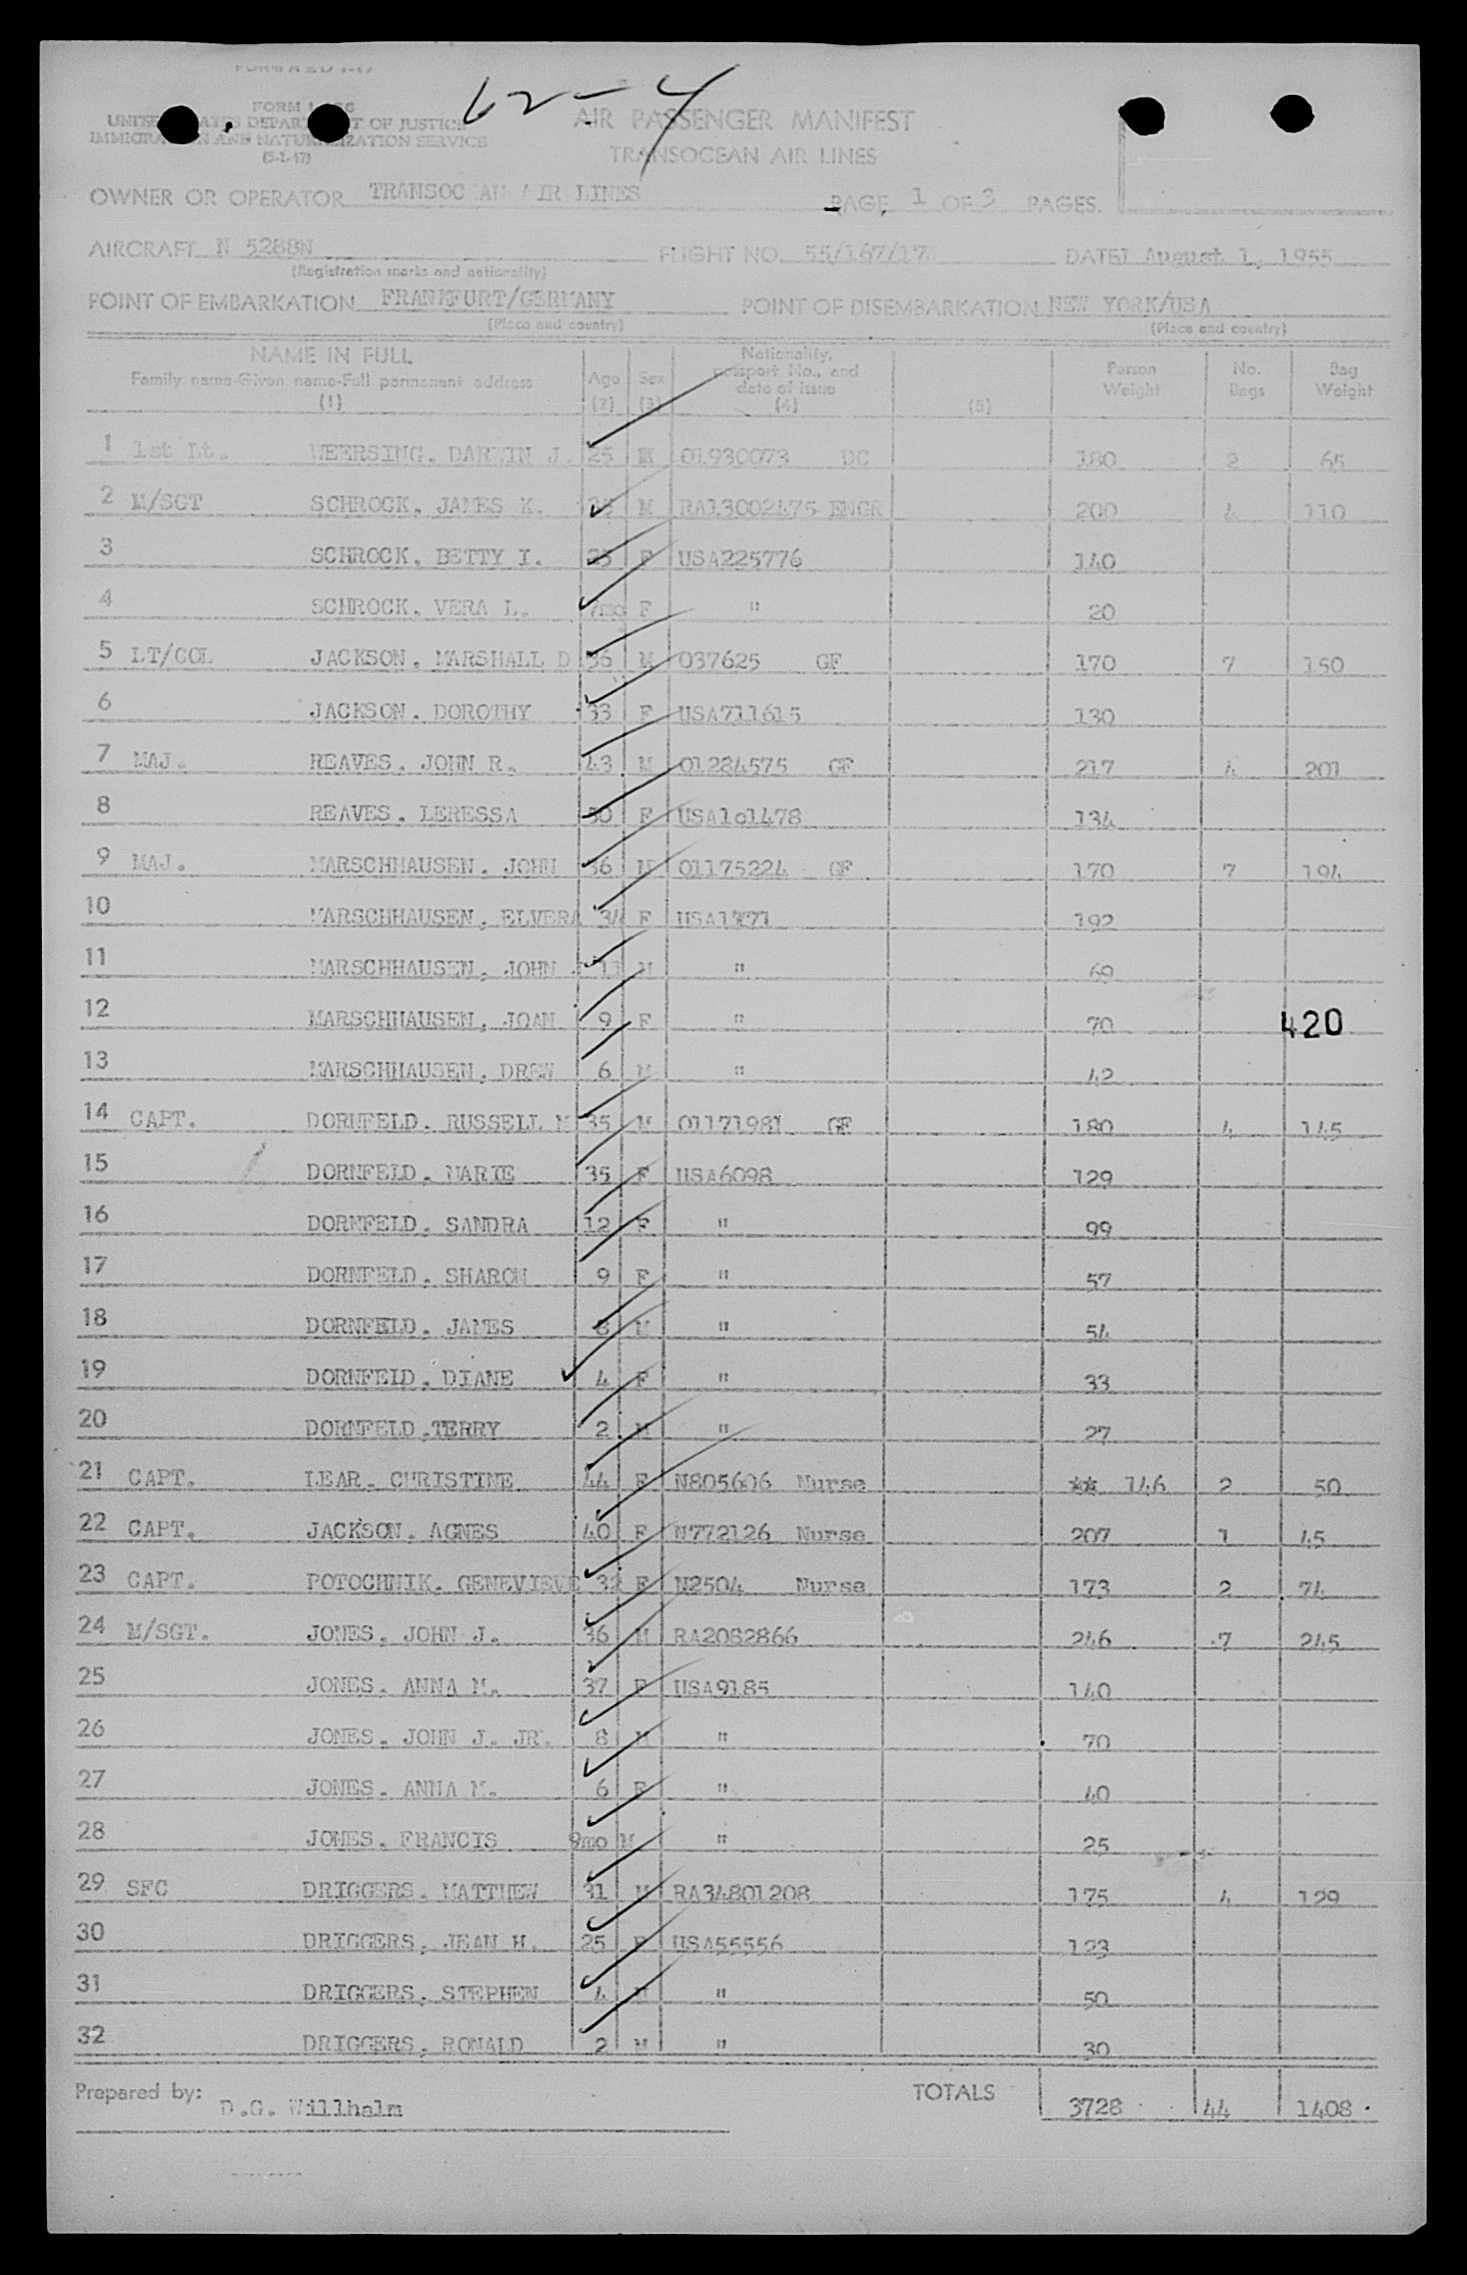 62-4
UNITED STATES DEPARTMENT OF JUSTICE
IMMIGRATION AND NATURALIZATION SERVICE
(5-1-47)
AIR PASSENGER MANIFEST
TRANSOCEAN AIR LINES
OWNER OR OPERATOR TRANSOC AN AIR LINES PAGE 1 OF 3 PAGES.
AIRCRAFT N 5288N FLIGHT NO. 55/167/17 DATE August 1, 1955
(Registration marks and nationality)
POINT OF EMBARKATION FRANKFURT/GERMANY POINT OF DISEMBARKATION NEW YORK/USA
(Place and country) (Place and country)
NAME IN FULL Nationality, Person No. Bag
Family name-Given name-Full permanent address Age Sex passport No., and Weight Bags Weight
(1) (2) (3) date of issue (4) (5)
1 1st Lt. WEERSING, DARWIN J. 25 M 01930073 DC 180 2 65
2 M/SGT SCHROCK, JAMES K. M RA13002475 ENGR 200 4 110
3 SCHROCK, BETTY I. 25 F USA225776 140
4 SCHROCK, VERA L. 7mo F " 20
5 LT/COL JACKSON, MARSHALL D 36 M 037625 GF 170 7 150
6 JACKSON, DOROTHY 33 F USA711615 130
7 MAJ. REAVES, JOHN R. 43 M 01284575 GF 217 4 201
8 REAVES, LERESSA 30 F USA101478 134
9 MAJ. MARSCHHAUSEN, JOHN 36 M 01175224 GF 170 7 194
10 MARSCHHAUSEN, ELVERA 34 F 192
11 MARSCHHAUSEN, JOHN 11 M " 69
12 MARSCHHAUSEN, JOAN 9 F " 70 420
13 MARSCHHAUSEN, DREW 6 M " 42
14 CAPT. DORNFELD, RUSSELL M 35 M 01171981 GF 180 4 145
15 DORNFELD, MARIE 35 F USA6098 129
16 DORNFELD, SANDRA 12 F " 99
17 DORNFELD, SHARON 9 F " 57
18 DORNFELD, JAMES 8 M " 54
19 DORNFELD, DIANE 4 F " 33
20 DORNFELD,TERRY 2 M " 27
21 CAPT. LEAR, CHRISTINE 44 F N805606 Nurse ** 146 2 50
22 CAPT. JACKSON, AGNES 40 F N772126 Nurse 207 1 45
23 CAPT. POTOCHNIK, GENEVIEVE 32 F N2504 Nurse 173 2 74
24 M/SGT. JONES, JOHN J. 36 M RA2082866 246 7 245
25 JONES, ANNA M. 37 F USA9185 140
26 JONES, JOHN J. JR. 8 M " 70
27 JONES, ANNA M. 6 F " 40
28 JONES, FRANCIS 9mo M " 25
29 SFC DRIGGERS, MATTHEW 31 M RA34801208 175 4 129
30 DRIGGERS, JEAN H. 25 F USA55556 123
31 DRIGGERS, STEPHEN 4 M " 50
32 DRIGGERS, RONALD 2 M " 30
Prepared by: D.G. Willhalm TOTALS 3728 44 1408